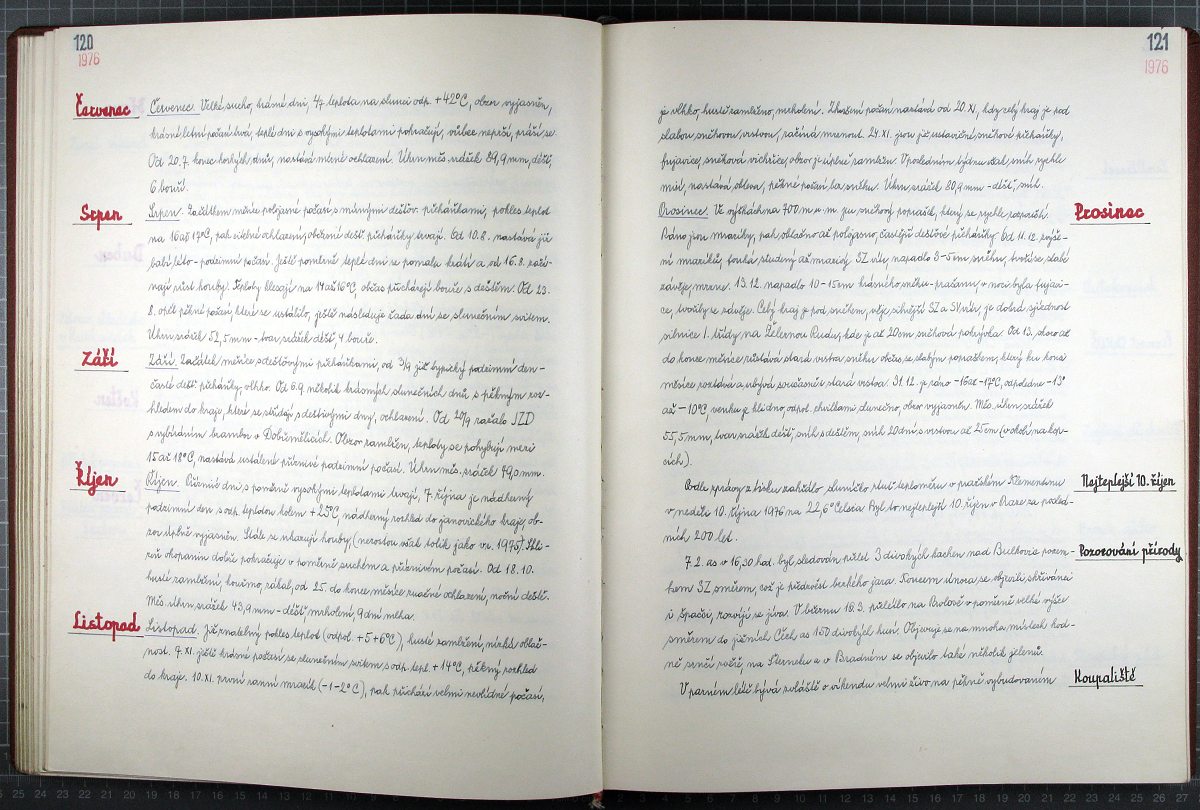 120
1976
Červenec
Červenec. Velké sucho, krásné dni, 4/7 teplota na slunci odp. +42°C, obzor vyjasněn,
krásné letní počasí trvá, teplé dni s vysokými teplotami pokračují, vůbec neprší, práší se.
Od 20.7. konec horkých dnů, nastává mírné ochlazení. Úhrn měs. srážek 89,9 mm, déšť,
6 bouří.
Srpen
Srpen. Začátkem měsíce polojasné počasí s mírnými dešťov. přeháňkami, pokles teplot
na 16 až 17°C, pak citelné ochlazení, občasné dešť. přeháňky trvají. Od 10.8. nastává již
babí léto - podzimní počasí. Ještě poměrně teplé dni se pomalu krátí a od 16.8. začí-
nají růst houby. Teploty klesají na 14 až 16°C, občas přicházejí bouře s deštěm. Od 23.
8. opět pěkné počasí, které se ustálilo, ještě následuje řada dní se slunečním svitem.
Úhrn srážek 52,5 mm - tvar srážek déšť, 4 bouře.
Září
Září. Začátek měsíce s dešťovými přeháňkami, od 3/9 již typický podzimní den -
časté dešť. přeháňky, vlhko. Od 6.9. několik krásných slunečních dnů s pěkným roz-
hledem do kraje, které se střídají s deštivými dny, ochlazení. Od 20/9 začalo JZD
s vybíráním brambor v Dobřeměticích. Obzor zamlžen, teploty se pohybují mezi
15 až 18°C, nastává ustálené příznivé podzimní počasí. Úhrn měs. srážek 49,0 mm.
Říjen
Říjen. Příznivé dni s poměrně vysokými teplotami trvají, 7. října je nádherný
podzimní den s odp. teplotou kolem +25°C, nádherný rozhled do janovického kraje, ob-
zor úplně vyjasněn. Stále se ukazují houby, (nerostou však tolik jako v r. 1975). Skli-
zeň okopanin dobře pokračuje v poměrně suchém a příznivém počasí. Od 18.10.
husté zamlžení, kouřmo, zákal, od 25. do konce měsíce značné ochlazení, noční deště.
Měs. úhrn srážek 43,9 mm - déšť, mrholení, 9 dní mlha.
Listopad
Listopad. Již znatelný pokles teplot (odpol. +5+6°C), husté zamlžení, nízká oblač-
nost. 7. XI. ještě krásné počasí se slunečním svitem s odp. tepl. +14°C, pěkný rozhled
do kraje. 10. XI. první ranní mrazík (-1-2°C), pak přichází velmi nevlídné počasí,
121
1976
je vlhko, hustě zamlženo, mrholení. Zhoršení počasí nastává od 20. XI., kdy celý kraj je pod
slabou sněhovou vrstvou, začíná mrznout. 24. XI. jsou již ustavičné sněhové přeháňky,
fujavice, sněhová vichřice, obzor je úplně zamlžen. V posledním týdnu však sníh rychle
mizí, nastává obleva, pěkné počasí bez sněhu. Úhrn srážek 80,9 mm - déšť, sníh.
Prosinec
Prosinec. Ve výškách na 700 m n. m. je sněhový poprašek, který se rychle rozpouští.
Ráno jsou mrazíky, pak oblačno až polojasno, častější dešťové přeháňky. Od 11.12. zvýše-
ní mrazíků, fouká studený až mrazivý SZ vítr, napadlo 3-5 cm sněhu, tvoří se slabé
závěje, mrzne. 13.12. napadlo 10-15 cm krásného sněhu - prašanu, v noci byla fujavi-
ce, tvořily se závěje. Celý kraj je pod sněhem, věje silnější SZ a SV vítr, je dobrá sjízdnost
silnice I. třídy na Železnou Rudu, kde je až 20 cm sněhová pokrývka. Od 13. skoro až
do konce měsíce zůstává stará vrstva sněhu občas se slabým popraškem, který ku konci
měsíce roztává a ubývá současně i stará vrstva. 31.12. je ráno -16 až -17°C, odpoledne -13°
až -10°C, venku je klidno, odpol. chvilkami slunečno, obzor vyjasněn. Měs. úhrn srážek
55,5 mm, tvar srážek déšť, sníh s deštěm, sníh 20 dní s vrstvou až 25 cm (v okolí na kop-
cích).
Nejteplejší 10. říjen
Podle zprávy z tisku zahřálo sluníčko rtuť teploměru v pražském Klementinu
v neděli 10. října 1976 na 22,6° Celsia. Byl to nejteplejší 10. říjen v Praze za posled-
ních 200 let.
Pozorování přírody
7.2. as v 16,30 hod. byl sledován přelet 3 divokých kachen nad Bulkovic pozem-
kem SZ směrem, což je předzvěst brzkého jara. Koncem února se objevili skřivánci
i špačci, rozvíjí se jíva. V březnu 18.3. přilétlo na Brolově v poměrně velké výšce
směrem do jižních Čech as 150 divokých husí. Objevuje se na mnoha místech hod-
ně srnčí zvěře, na Šterneku a v Bradném se objevilo také několik jelenů.
Koupaliště
V parném létě bývá zvláště o víkendu velmi živo na pěkně vybudovaném